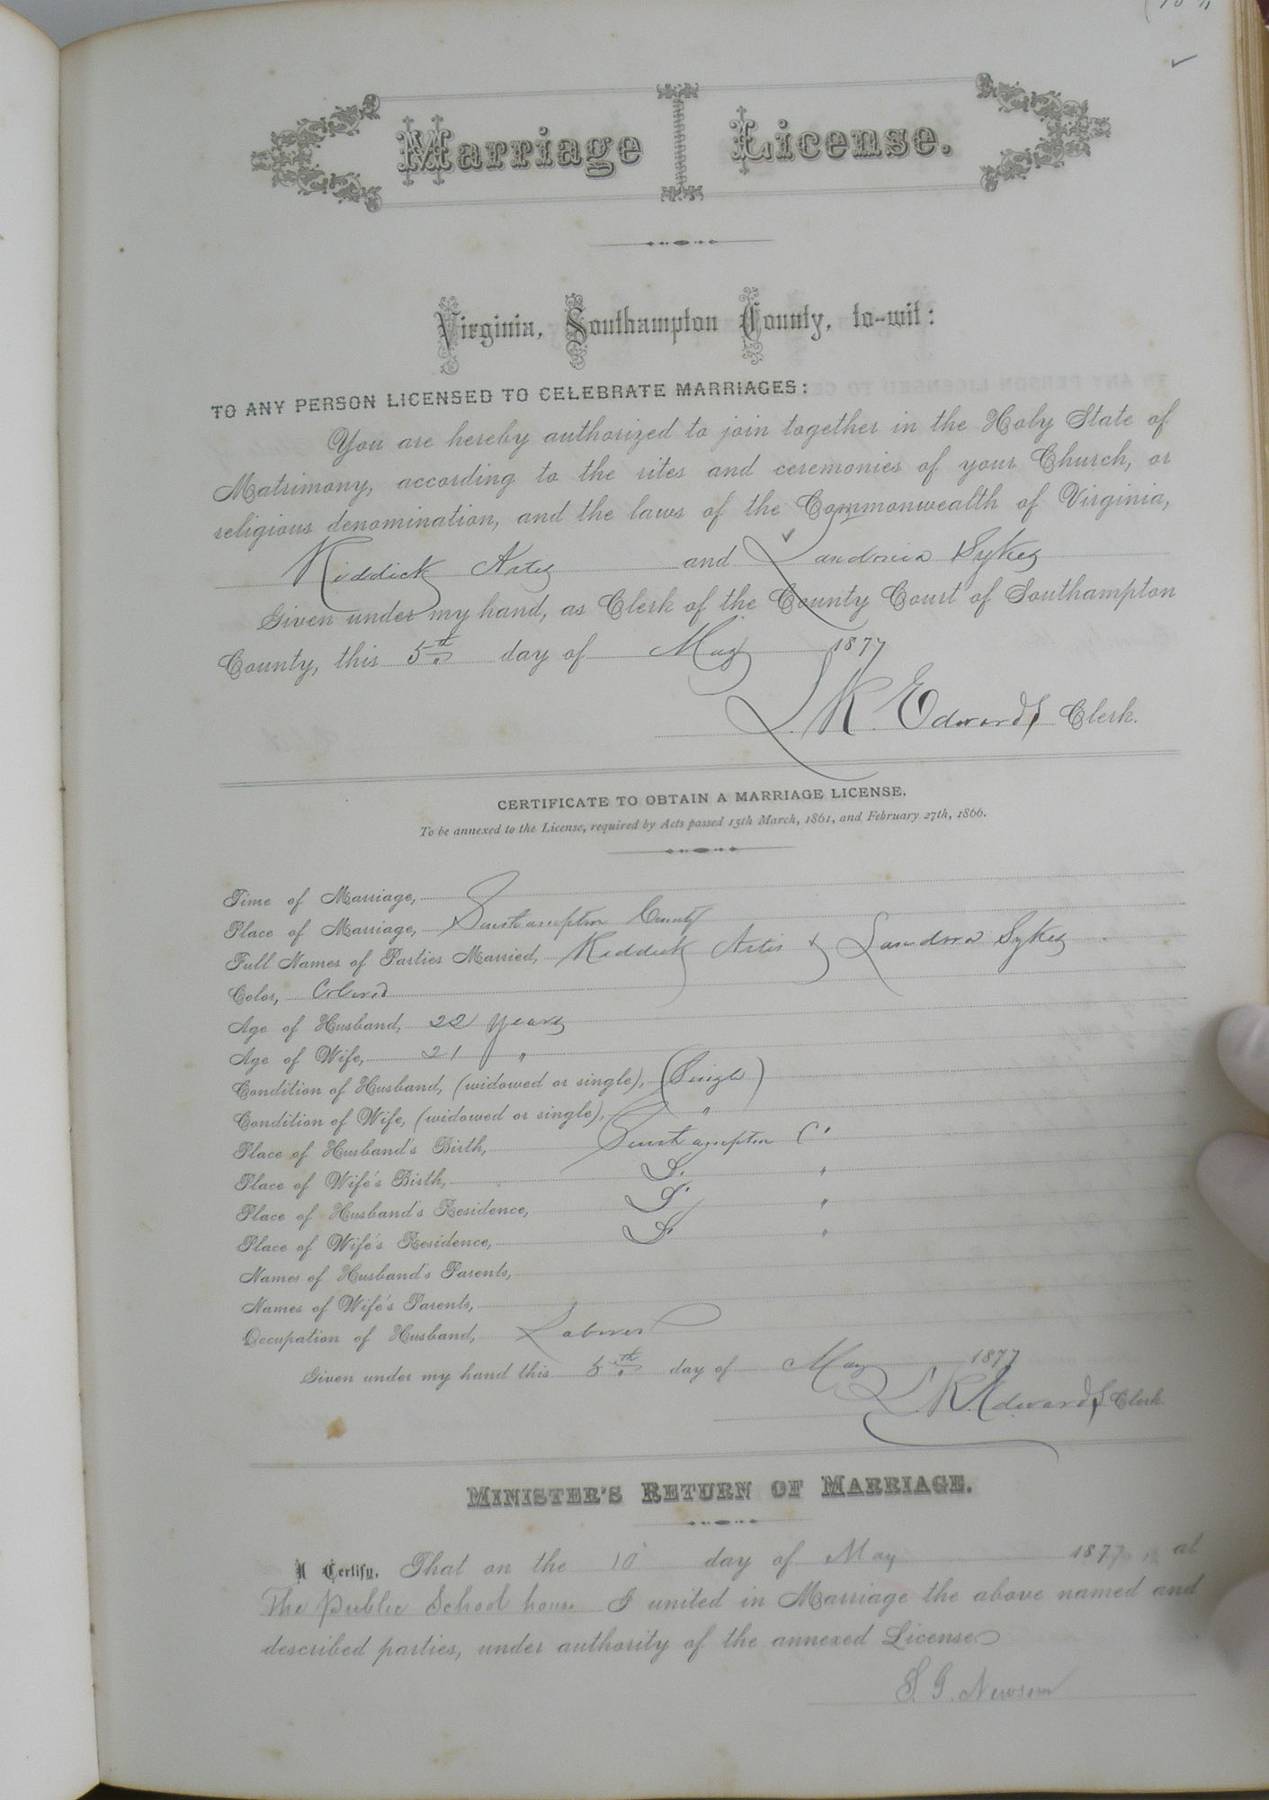 Marriage License.
Virginia, Southampton County, to-wit:
TO ANY PERSON LICENSED TO CELEBRATE MARRIAGES:
You are hereby authorized to join together in the Holy State of
Matrimony, according to the rites and ceremonies of your Church, or
religious denomination, and the laws of the Commonwealth of Virginia,
Riddick Artis and Landonia Sykes
Given under my hand, as Clerk of the County Court of Southampton
County, this 5th day of May 1877
L. R. Edwards Clerk.
CERTIFICATE TO OBTAIN A MARRIAGE LICENSE.
To be annexed to the License, required by Acts passed 15th March, 1861, and February 27th, 1866.
Time of Marriage,
Place of Marriage, Southampton County
Full Names of Parties Married, Riddick Artis & Sykes
Color, Colored
Age of Husband, 22 years
Age of Wife, 21 "
Condition of Husband, (widowed or single), (Single)
Condition of Wife, (widowed or single), "
Place of Husband's Birth, Southampton C"
Place of Wife's Birth, S. "
Place of Husband's Residence, S. "
Place of Wife's Residence, S. "
Names of Husband's Parents,
Names of Wife's Parents,
Occupation of Husband, Laborer
Given under my hand this 5th day of May 1877
L. R. Edwards Clerk.
MINISTER'S RETURN OF MARRIAGE.
I Certify, That on the 10 day of May 1877, at
The Public School house I united in Marriage the above named and
described parties, under authority of the annexed License
S. G. Newsom